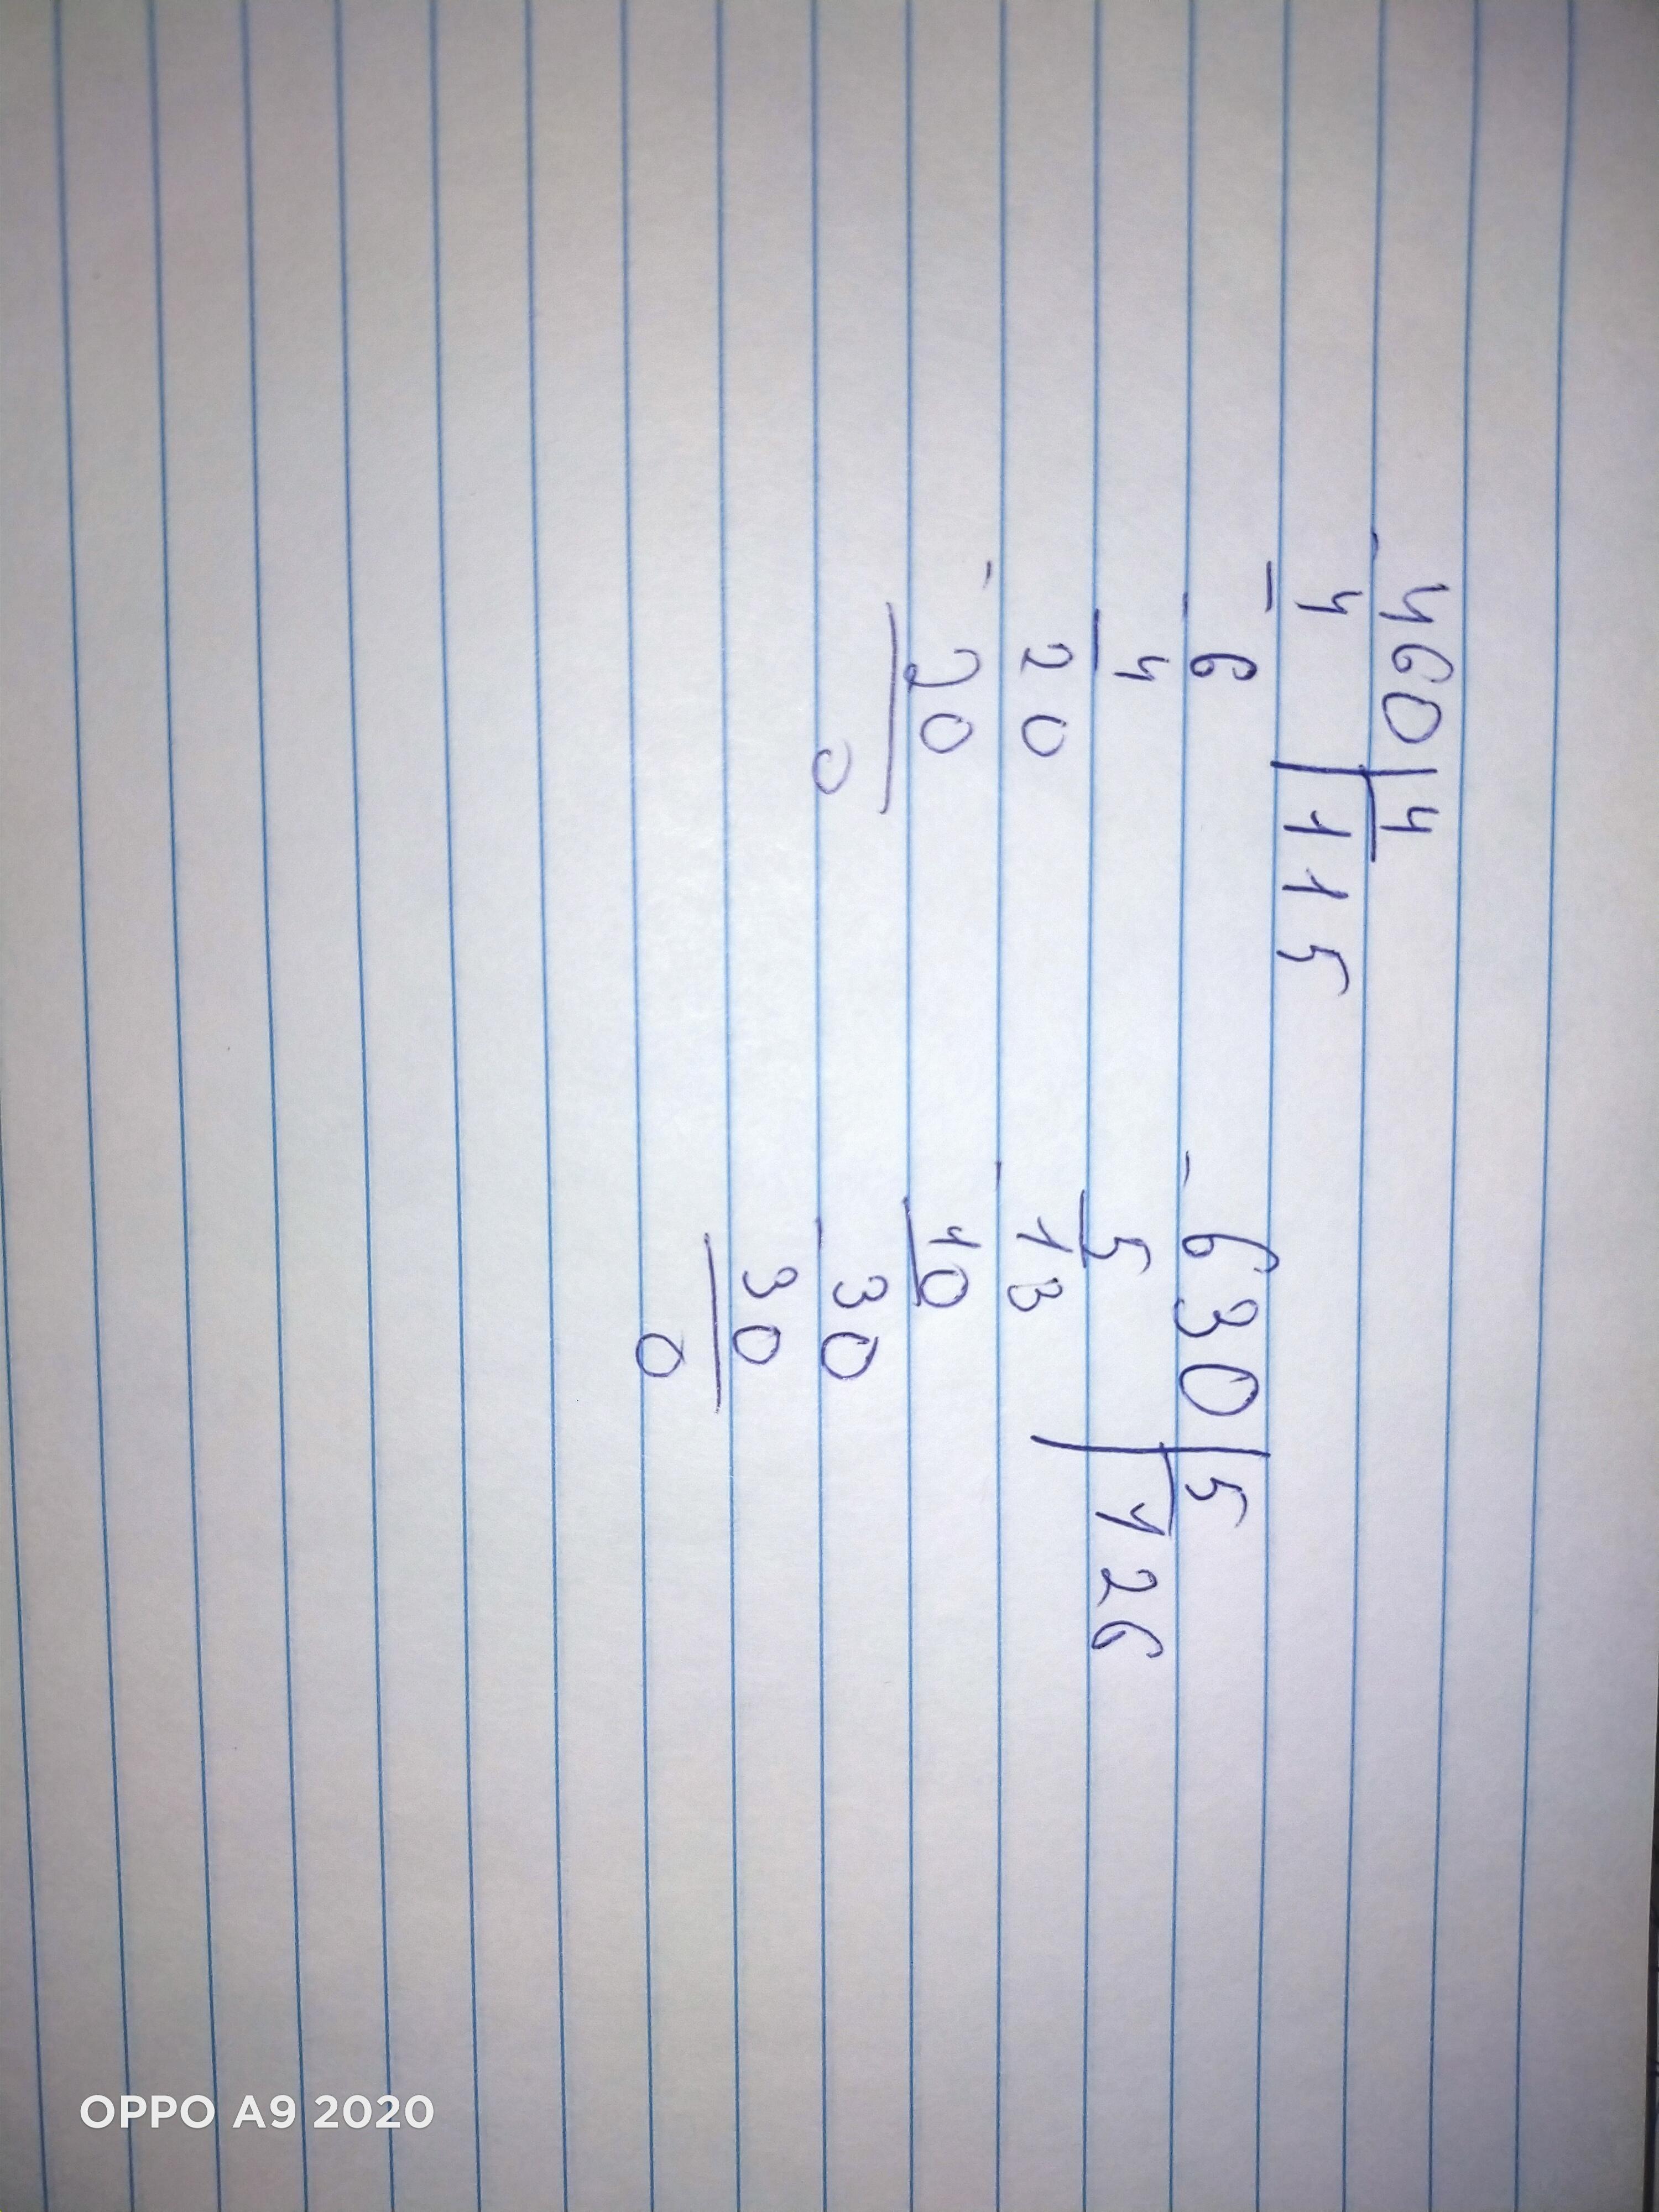 460 | 4
- 4 | 115
- 6
4
- 20
20
0
- 630 | 5
5 | 126
- 13
10
- 30
30
0
OPPO A9 2020